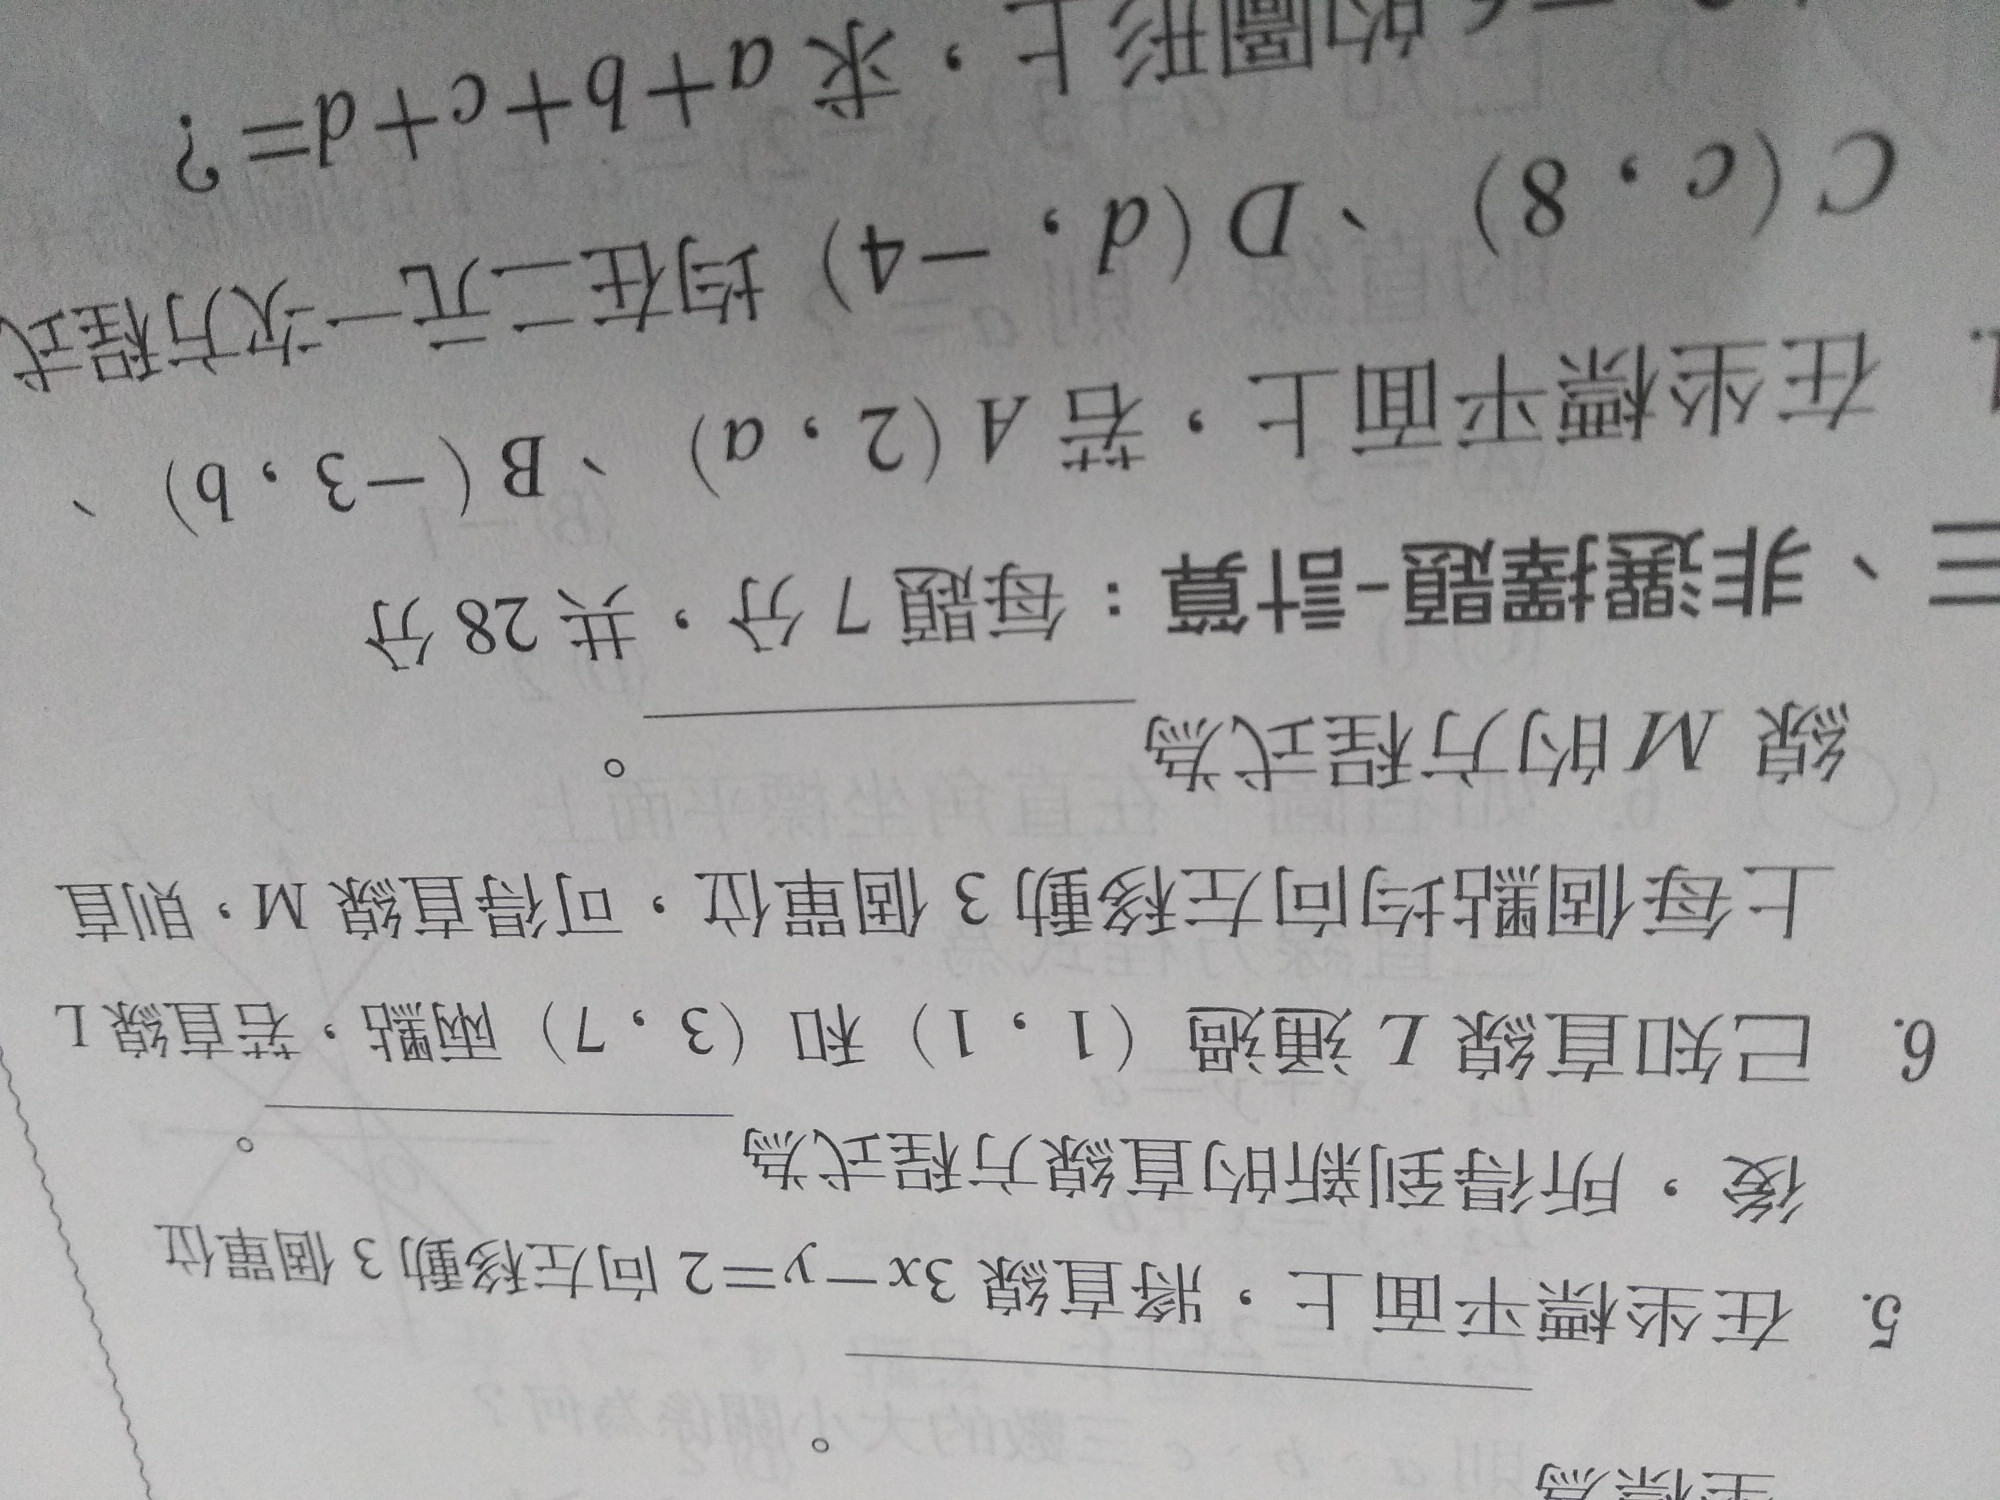 坐標為
。
5. 在坐標平面上，將直線 3x－y＝2 向左移動 3 個單位
後，所得到新的直線方程式為 。
6. 已知直線 L 通過（1，1）和（3，7）兩點，若直線 L
上每個點均向左移動 3 個單位，可得直線 M，則直
線 M 的方程式為 。
三、非選擇題-計算：每題 7 分，共 28 分
1. 在坐標平面上，若 A（2，a）、B（－3，b）、
C（c，8）、D（d，－4）均在二元一次方程式
的圖形上，求 a＋b＋c＋d＝？